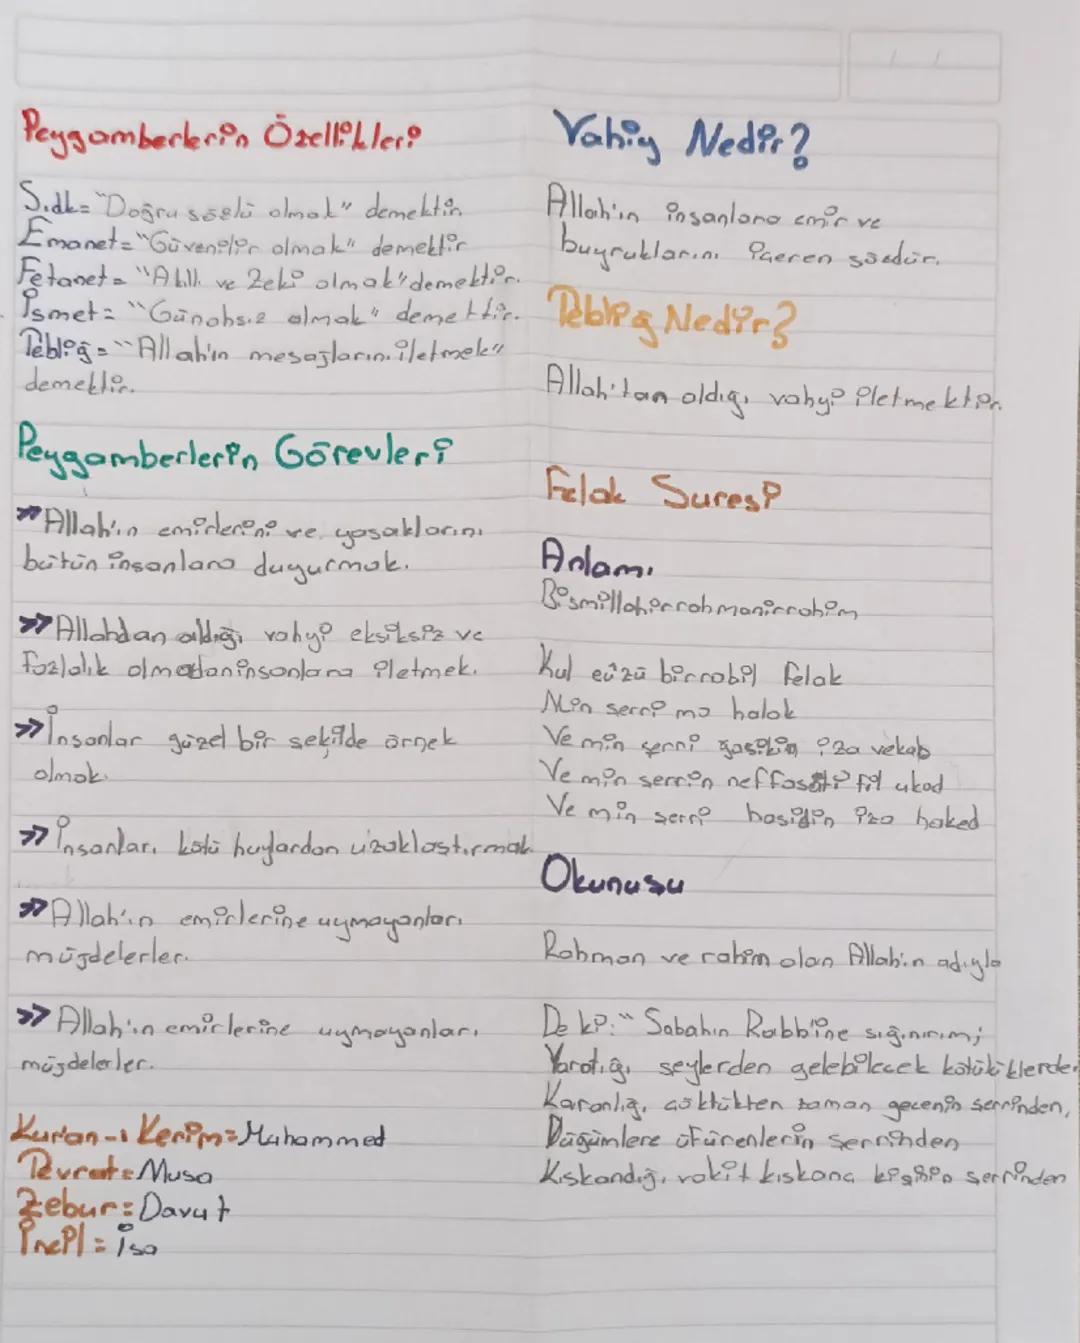 Peygamberlerin Özellikleri
Sıdk= "Doğru sözlü olmak" demektir.
Emanet= "Güvenilir olmak" demektir
Fetanet= "Akıllı ve Zeki olmak" demektir.
İsmet= "Günahsız olmak" demettir.
Tebliğ= "Allah'ın mesajlarını iletmek"
demektir.
Peygamberlerin Görevleri
>> Allah'ın emirlerini ve yasaklarını
bütün insanlara duyurmak.
>> Allahdan aldığı vahyi eksiksiz ve
fazlalık olmadan insanlara iletmek.
>> İnsanlar güzel bir şekilde örnek
olmak.
>> İnsanları kötü huylardan uzaklaştırmak
>> Allah'ın emirlerine uymayanları
müjdelerler.
>> Allah'ın emirlerine uymayanları
müjdelerler.
Kur'an-ı Kerim= Muhammed
Tevrat= Musa
Zebur= Davut
İncil= İsa
Vahiy Nedir?
Allah'ın insanlara emir ve
buyruklarını içeren sözdür.
Tebliğ Nedir?
Allah'tan aldığı vahyi iletmektir.
Felak Suresi
Anlamı
Bismillahirrahmanirrahim
Kul eûzü birrabil felak
Min şerri ma halak
Ve min şerri gasikin iza vekab
Ve min serrin neffasati fil ukad
Ve min şerri hasidin iza haked
Okunuşu
Rahman ve rahim olan Allah'ın adıyla
De ki: "Sabahın Rabbine sığınırım;
Yarattığı şeylerden gelebilecek kötülüklerden
Karanlığı çöktükten zaman gecenin şerrinden,
Düğümlere üfürenlerin şerrinden
Kıskandığı vakit kıskanç kişinin şerrinden